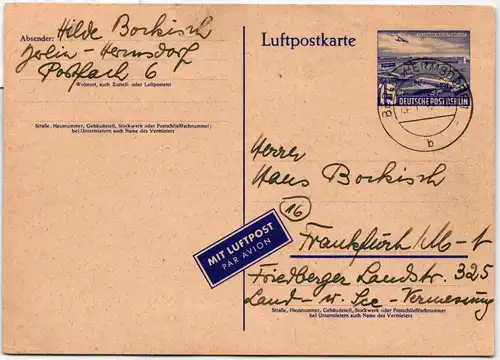 Absender: Hilde Bockisch
Berlin-Hermsdorf
Postfach 6
Wohnort, auch Zustell- oder Leitpostamt
Straße, Hausnummer, Gebäudeteil, Stockwerk oder Postschließfachnummer;
bei Untermietern auch Name des Vermieters
Luftpostkarte
15 DEUTSCHE POST BERLIN
b
Herrn
Hans Bockisch
16
Frankfurt/M-1
MIT LUFTPOST
PAR AVION
Friedberger Landstr. 325
Land- u. See-Vermessung
Straße, Hausnummer, Gebäudeteil, Stockwerk oder Postschließfachnummer;
bei Untermietern auch Name des Vermieters